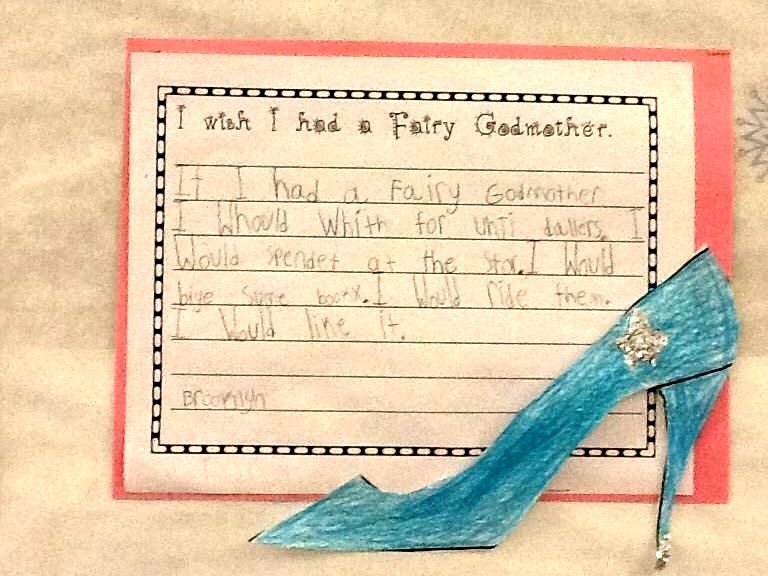 I wish I had a Fairy Godmother.
If I had a Fairy Godmother
I Whould Whith for unti dallers. I
Would spendet at the stor. I Would
biye sume bookx. I Would ride them.
I Would like it.
Brooklyn